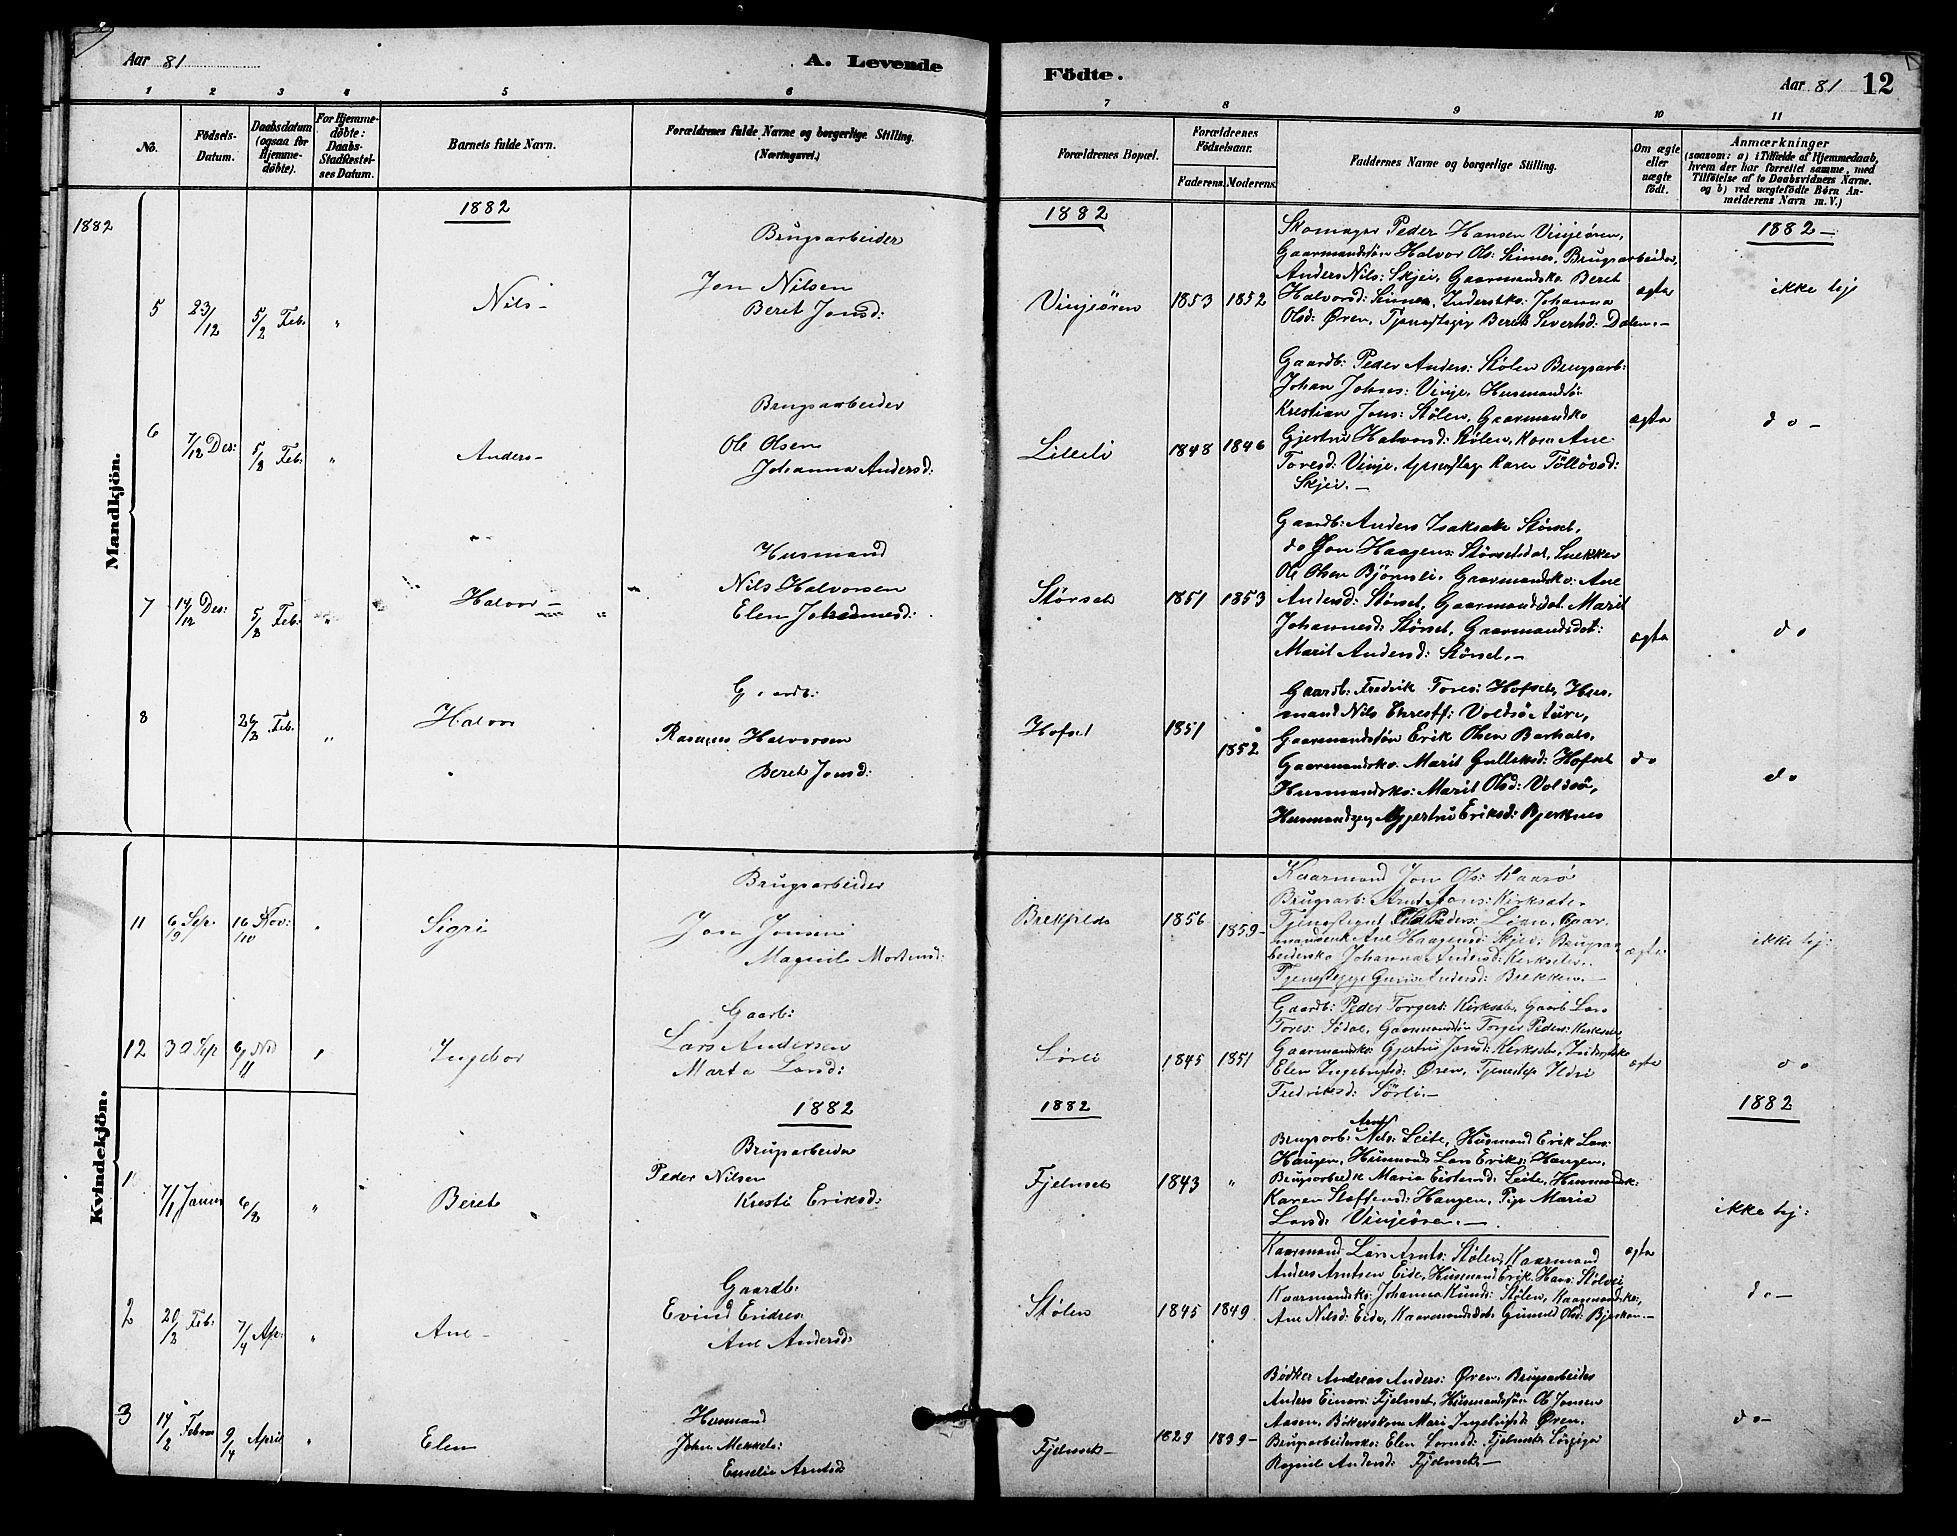 Aar 81
A. Levende
Födte.
Aar 81
12
1 2 3 4 5 6 7 8 9 10 11
No.
Födsels-
Datum.
Daabsdatum
(ogsaa for
Hjemme-
döbte).
For Hjemme-
döbte:
Daabs-
Stadfæstel-
ses Datum.
Barnets fulde Navn.
Forældrenes fulde Navne og borgerlige Stilling.
(Næringsvei.)
Forældrenes Bopæl.
Forældrenes
Födselsaar.
Faderens. Moderens.
Faddernes Navne og borgerlige Stilling.
Om ægte
eller
uægte
födt.
Anmærkninger
(saasom: a) i Tilfælde af Hjemmedaab,
hvem der har forrettet samme, med
Tilföielse af to Daabsvidners Navne.
og b) ved uægtefödte Börn An-
melderens Navn m. V.)
Mandkjön.
1882
1882
1882
1882 -
5 23/12 5/2 Feb. "
Nils -
Brugsarbeider
Jon Nilsen
Beret Jonsd:
Vinjeören
1853 1852
Skomager Peder Hansen Vinjeören,
Gaarmandsön Halvor Ols: Sinnes, Brugsarbeider,
Anders Nils: Skjei, Gaarmandsko Beret
Halvorsd: Sinnes, Inderstko: Johanna
Olsd: Ören, Tjenestepig Beret Sivertsd: Dalen. -
ægta
ikke tej
6 7/12 Des: 5/2 Feb. "
Anders -
Brugsarbeider
Ole Olsen
Johanna Andersd:
Lilleli
1848 1846
Gaardb: Peder Anders: Stölen Brugsarb:
Johan Johns: Vinje, Husmandsö:
Krestian Jons: Stölen, Gaarmandsko
Gjertru Halvorsd: Stölen, Kone Ane
Toresd: Vinje, tjenestepig Karen Töllövsd:
Skjei. -
ægta
do -
7 14/12 Des: 5/2 Feb. "
Halvor -
Husmand
Nils Halvorsen
Elen Johannesd:
Störset
1851 1853
Gaardb: Anders Isaksen Störset,
do Jon Haagens: Störsetdal, Snekker
Ole Olsen Björnli, Gaarmandsko: Ane
Andersd: Störset, Gaarmandsdat. Marit
Johannesd: Störset, Gaarmandsdat:
Marit Andersd: Störset. -
ægta
do
8 26/2 Feb. "
Halvor
Gaardb:
Rasmus Halvorsen
Beret Jonsd:
Hofset
1851
1852
Gaardb: Fredrik Tores: Hofset, Hus-
mand Nils Ehrestf: Voldsö Aure,
Gaarmandsön Erik Olsen Barhals,
Gaarmandsko. Marit Gulleksd: Hofset
Husmandsko: Marit Olsd: Voldsö,
Husmandspig Gjertru Eriksd: Bjerknes
do
do
Kvindekjön.
11 6/9 Sep. 16/10 Nov: "
Sigri
Brugsarbeider
Jon Jonsen
Magnil Mortensd:
Brekfelde
1856 1859 -
Kaarmand Jon Ols: Kaarö
Brugsarb: Arnt Jons: Kirksæte.
Tjenestegut Peder Peders: Lien, Gaar-
mandsenk Ane Haagensd: Skjei, Brugsar-
beidersko Johanna Andersd: Kerksete,
Tjenestepige Guru Andersd: Brekken. -
ægte
ikke tej:
12 30 Sep 6/11 No "
Ingebor
Gaarb:
Lars Andersen
Marta Larsd:
Sörli
1845 1851
Gaardb: Peder Torgers: Kirksæte, Gaarb Lars
Tores: Södal, Gaarmandsön Torger Peders: Kerksæte
Gaarmandsko: Gjertru Jonsd: Kerksæte, Inderstko
Elen Ingebrigtsd: Ören, Tjenestepi Ildri
Fredriksd: Sörli. -
ægta
do
1882
1882
1882
1 7/1 Januar 6/2 "
Beret
Brugsarbeider
Peder Nilsen
Kresti Eriksd:
Fjelnset
1843 "
Arnt
Brugsarb: Nils: Leite, Husmand Erik Lars:
Haugen, Husmand Lars Eriks: Haugen,
Brugsarbeidk Maria Eistensd: Leite, Husmandsk:
Karen Staffensd: Haugen, Pige Maria
Larsd: Vinjeören. -
ægta
ikke tej:
2 20/2 Feb: 7/4 Ap: "
Ane -
Gaardb.
Evind Endres
Ane Andersd:
Stölen
1845 1849
Kaarmand Lars Arnts: Stölen, Kaarmand
Anders Arntsen Eide, Husmand Erik Hans: Stölvei
Kaarmandsko: Johanna Knuds: Stölen, Kaarmandsko:
Ane Nilsd: Eide, Kaarmandsdat: Gunnel Olsd: Bjerkan. -
do -
3 14/2 Febrar 9/4 April "
Elen
Husmand
John Mekkels:
Emelie Arntsd:
Fjelnset -
1829 1839 -
Bödker Andreas Anders: Ören, Brugsarbeider
Anders Einars: Fjelnset, Husmandsön Ole Jonsen
Aasen, Bökerskone Mari Ingebrigtsd: Ören,
Brugsarbeidersko: Elen Larsd: Fjelnset,
Ragnil Andersd: Fjelnset -
do -